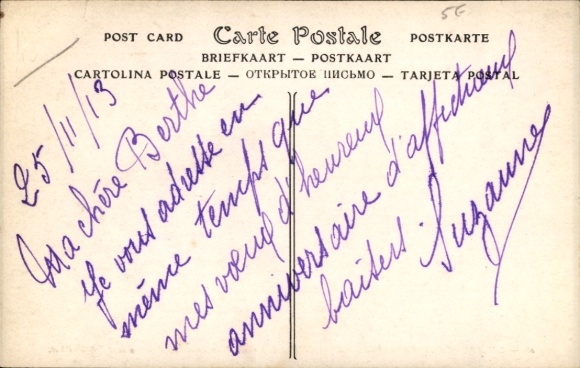 5F
POST CARD Carte Postale POSTKARTE
BRIEFKAART — POSTKAART
CARTOLINA POSTALE — ОТКРЫТОЕ ПИСЬМО — TARJETA POSTAL
25/11/13
Ma chère Berthe
Je vous adresse en
même temps que
mes vœux d'heureux
anniversaire d'affectueux
baisers. Suzanne